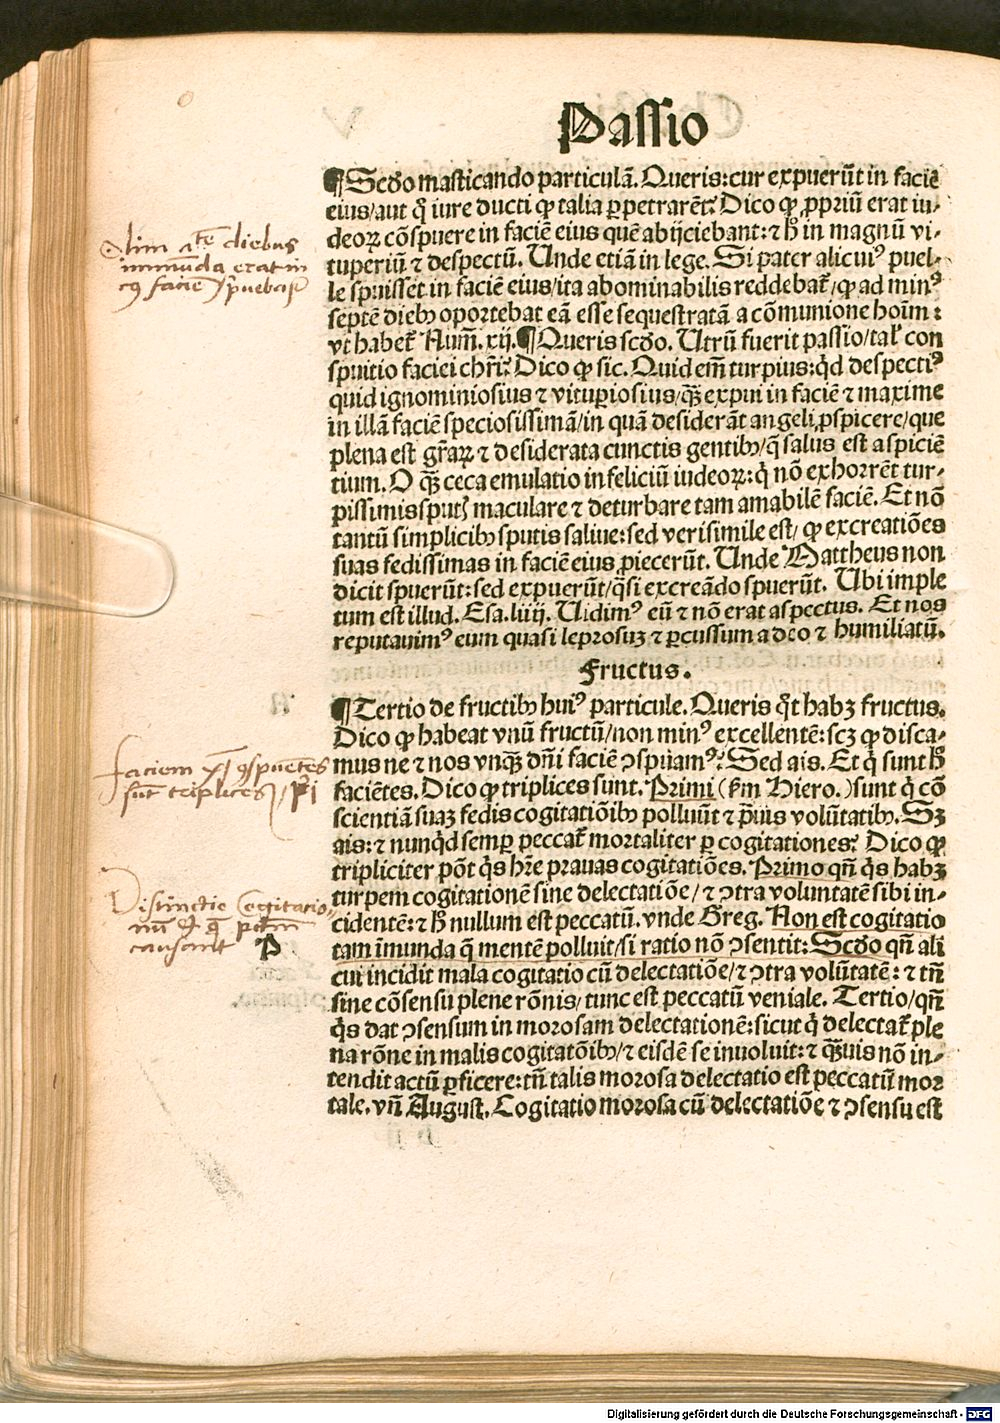 Passio
¶Scd̄o masticando particulā. Queris: cur expuerūt in facie
eius/aut qͦ iure ducti ꝙ talia ꝑpetrarēt? Dico ꝙ ꝓpriū erat iu-
deoꝝ cōspuere in faciē eius quē abijciebant: ⁊ hͦ in magnū vi-
tuperiū ⁊ despectū. Unde etiā in lege. Si pater alicuiꝰ puel-
le spuisset in faciē eius/ita abominabilis reddebat᷑/ꝙ ad minꝰ
septē diebꝫ oportebat eā esse sequestratā a cōmunione hoīm:
vt habet᷑ Num̄. xij. ¶Queris scd̄o. Utrū fuerit passio/tal᷑ con
spuitio faciei chr̄i? Dico ꝙ sic. Quid em̄ turpius: qͥd despectiꝰ
quid ignominiosius ⁊ vituꝑiosius/qꝫ̄ expui in faciē ⁊ maxime
in illā faciē speciosissimā/in quā desiderāt angeli ꝓspicere/que
plena est gr̄aꝝ ⁊ desiderata cunctis gentibꝫ/q̄ salus est aspiciē
tium. O qꝫ̄ ceca emulatio infeliciū iudeoꝝ: qͥ nō exhorrēt tur-
pissimis sput᷑ maculare ⁊ deturbare tam amabilē faciē. Et nō
tantū simplicibꝫ sputis saliue: sed verisimile est/ ꝙ excreatiōes
suas fedissimas in faciē eius ꝓiecerūt. Unde Mattheus non
dicit spuerūt: sed expuerūt/qͣsi excreādo spuerūt. Ubi imple
tum est illud. Esa. liiij. Uidimꝰ eū ⁊ nō erat aspectus. Et nos
reputauimꝰ eum quasi leprosuꝫ ⁊ ꝑcussum a deo ⁊ humiliatū.
Fructus.
¶Tertio de fructibꝫ huiꝰ particule. Queris qͦt habꝫ fructus.
Dico ꝙ habeat vnū fructū/non minꝰ excellentē: scꝫ ꝙ disca-
mus ne ⁊ nos vnqꝫ̄ dn̄i faciē ꝯspuamꝰ? Sed ais. Et qͥ sunt hͦ
faciētes. Dico ꝙ triplices sunt. Primi (ẜm Hiero.) sunt qͥ cō
scientiā suaꝫ fedis cogitatiōibꝫ polluūt ⁊ p̄uis volūtatibꝫ. Sꝫ
ais: ⁊ nunqͥd semꝑ peccat᷑ mortaliter ꝑ cogitationes? Dico ꝙ
tripliciter pōt qͥs hr̄e prauas cogitatiōes. Primo qn̄ qͥs habꝫ
turpem cogitationē sine delectatiōe/⁊ ꝯtra voluntatē sibi in-
cidentē: ⁊ hͦ nullum est peccatū. vnde Greg. Non est cogitatio
tam īmunda q̄ mentē polluit/si ratio nō ꝯsentit: Scd̄o qn̄ ali
cui incidit mala cogitatio cū delectatiōe/⁊ ꝯtra volūtatē: ⁊ tn̄
sine cōsensu plene rōnis/tunc est peccatū veniale. Tertio/qn̄
qͥs dat ꝯsensum in morosam delectationē: sicut qͥ delectat᷑ ple
na rōne in malis cogitatōibꝫ/⁊ eisdē se inuoluit: ⁊ qꝫ̄uis nō in-
tendit actū ꝑficere: tn̄ talis morosa delectatio est peccatū mor
tale. vn̄ August. Cogitatio morosa cū delectatiōe ⁊ ꝯsensu est
diebus
immūda erat in
faciē
faciem
sūt triplices
Distinctie Cogitatio
causant
Digitalisierung gefördert durch die Deutsche Forschungsgemeinschaft - DFG